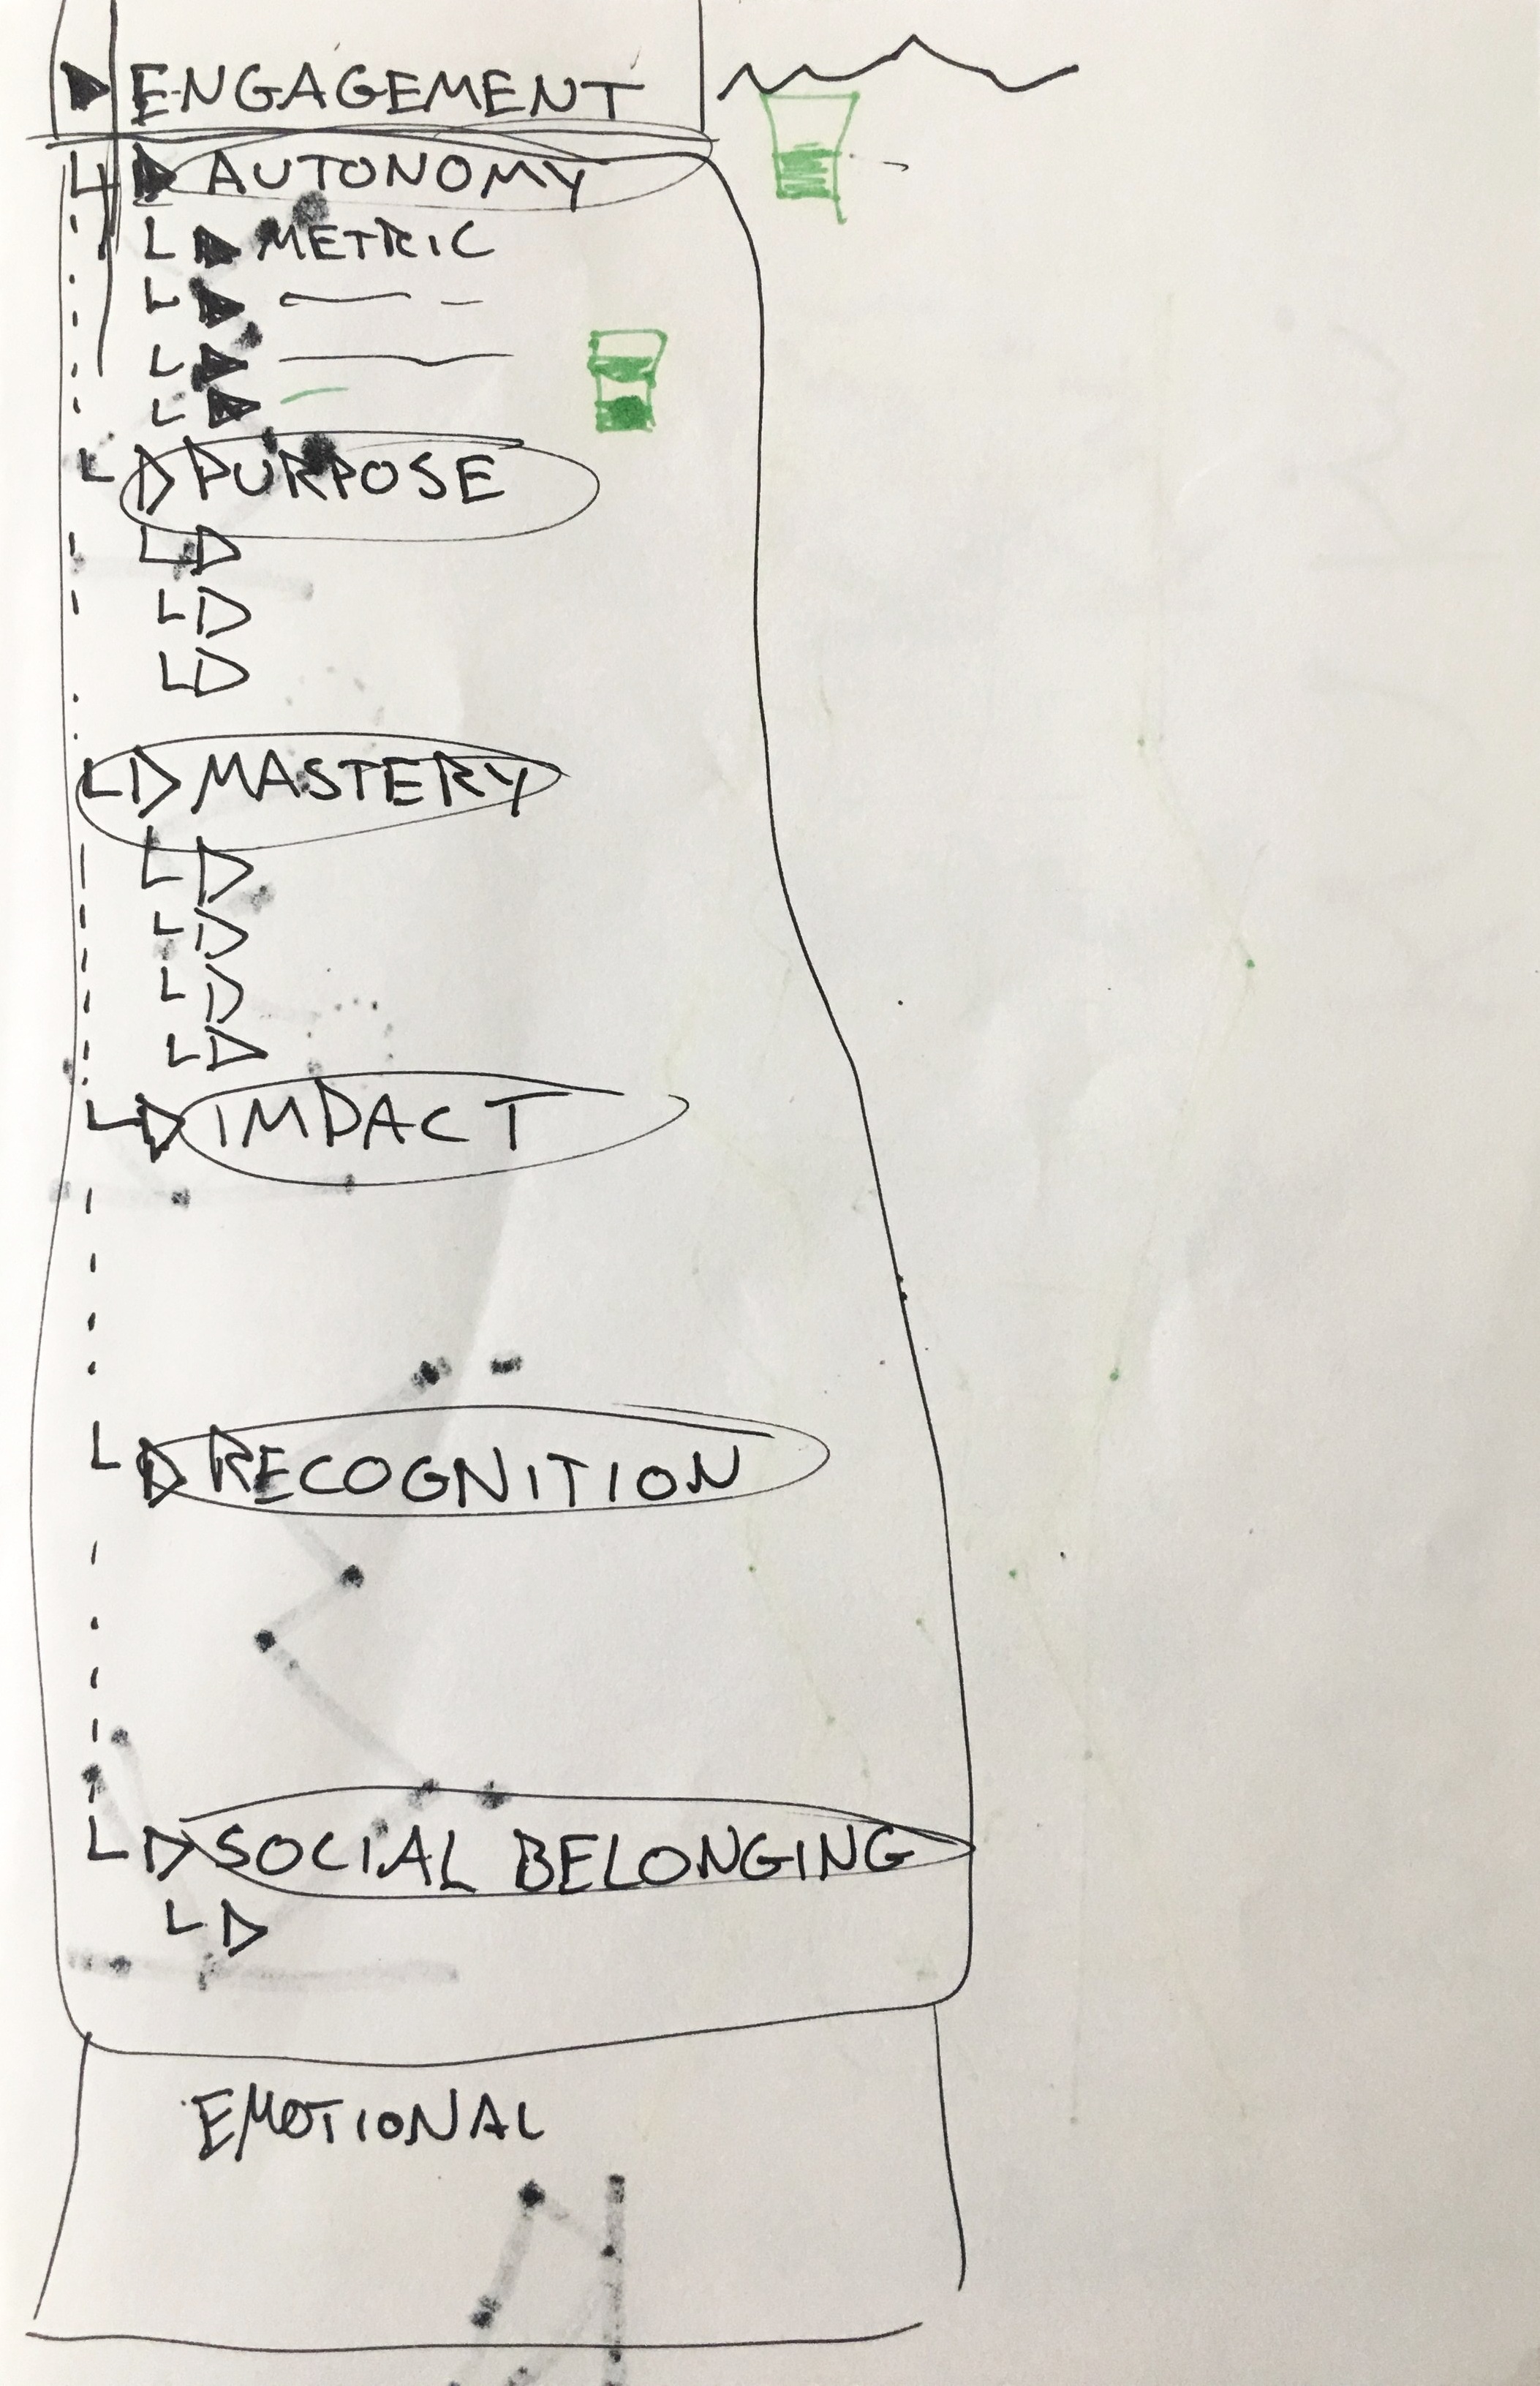 ENGAGEMENT
AUTONOMY
METRIC
PURPOSE
MASTERY
IMPACT
RECOGNITION
SOCIAL BELONGING
EMOTIONAL